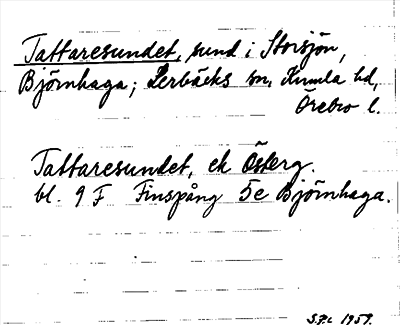 Tattaresundet, sund i Storsjön,
Björnhaga; Lerbäcks sn, Kumla hd,
Örebro l.
Tattaresundet, ek Österg.
bl. 9 F Finspång 5e Björnhaga.
S.P.L 1959.